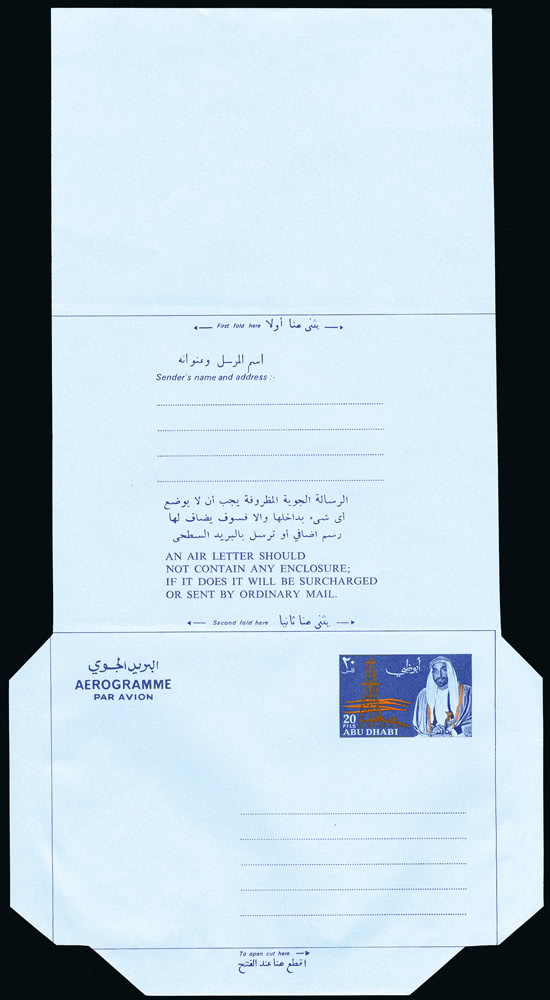 First fold here يثنى هنا أولا
اسم المرسل وعنوانه
Sender's name and address :-
الرسالة الجوية المظروفة يجب أن لا يوضع
أى شىء بداخلها والا فسوف يضاف لها
رسم اضافي أو ترسل بالبريد السطحى
AN AIR LETTER SHOULD
NOT CONTAIN ANY ENCLOSURE;
IF IT DOES IT WILL BE SURCHARGED
OR SENT BY ORDINARY MAIL.
Second fold here يثنى هنا ثانيا
البريد الجوي
AEROGRAMME
PAR AVION
٢٠ فلس أبوظبي
20
FILS
ABU DHABI
To open cut here
اقطع هنا عند الفتح